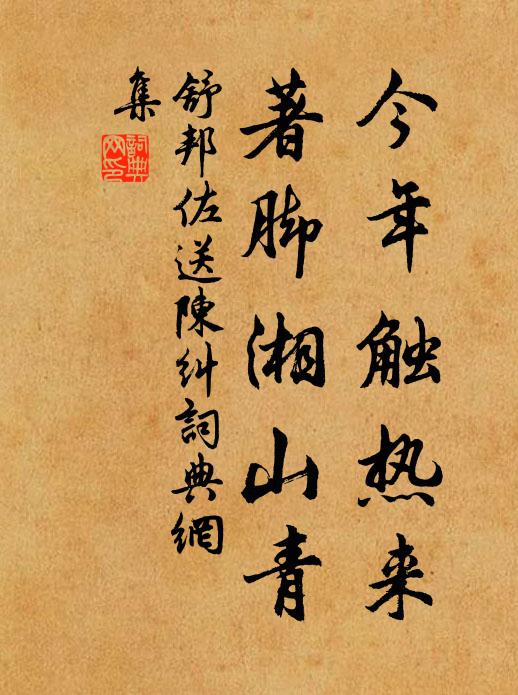 今年触热来
著脚湘山青
舒邦佐送陳糾詞典網
集
詞典网印